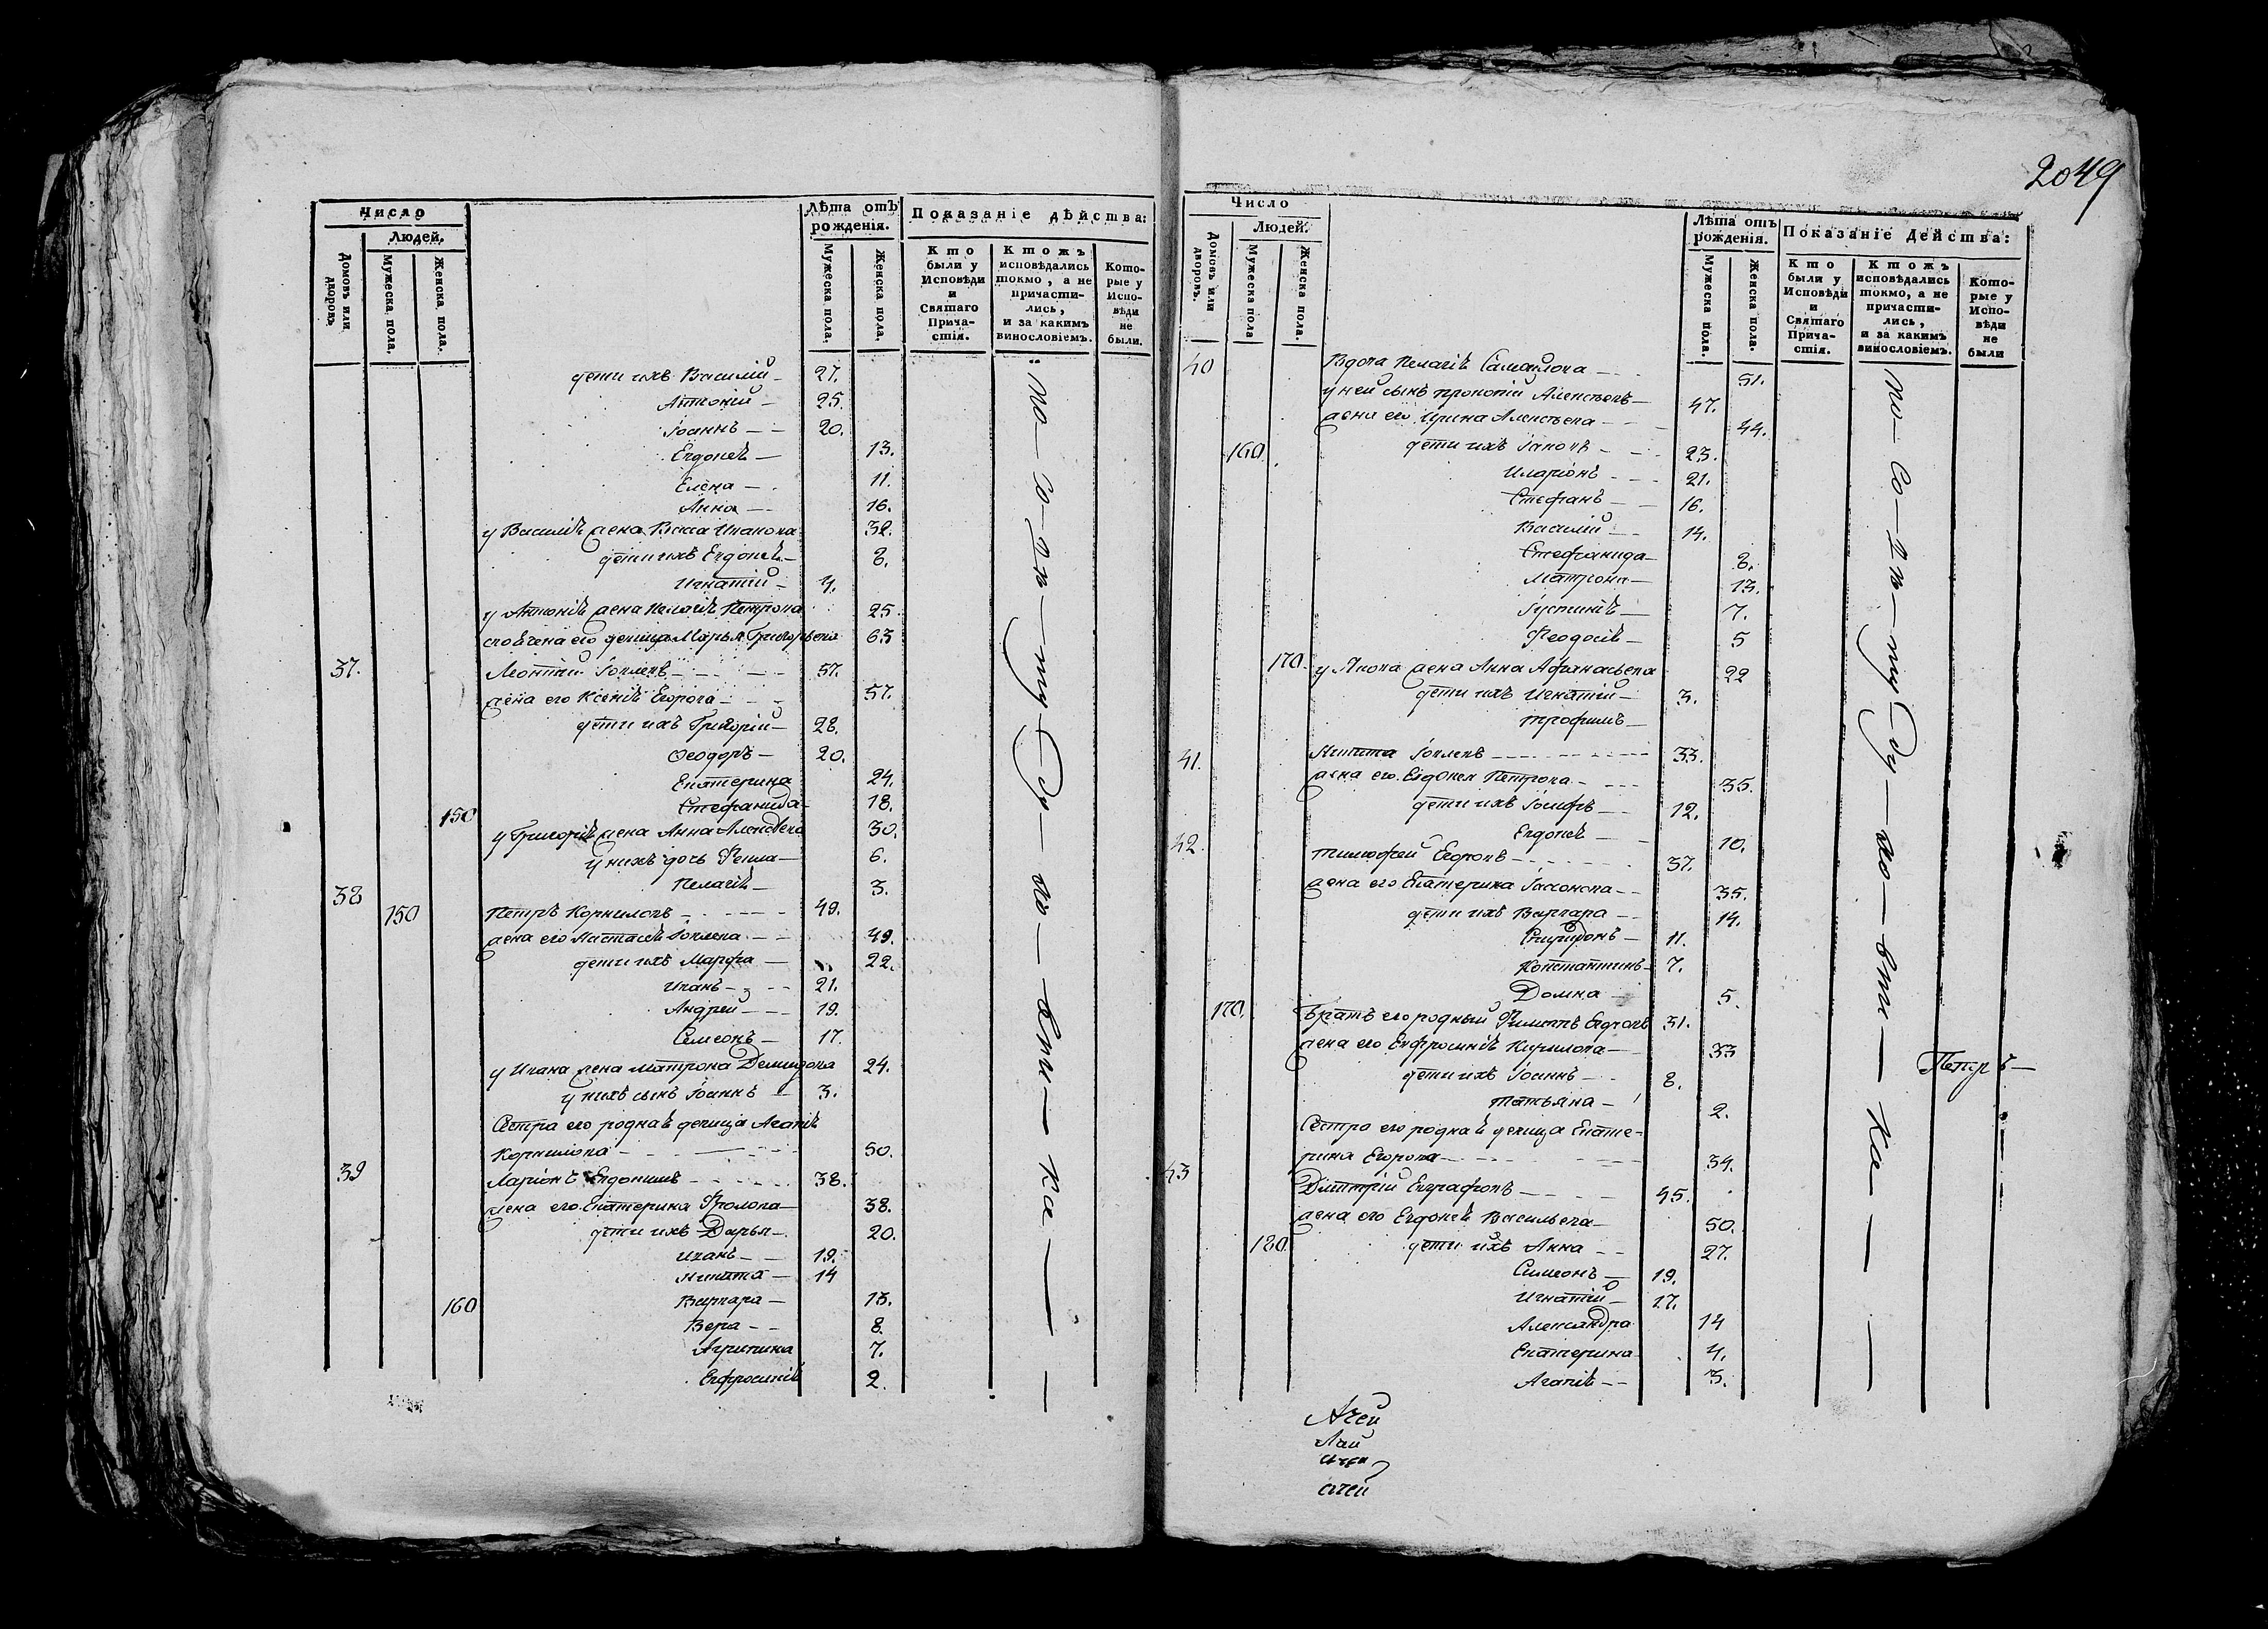 2049
Число
Людей.
Домовъ или дворовъ
Мужеска пола.
Женска пола.
Лѣта отъ рожденія.
Мужеска пола.
Женска пола.
Показаніе дѣйства:
Кто были у Исповѣди и Святаго Причастія.
Ктожъ исповѣдались токмо, а не причастились, и за какимъ винословіемъ.
Которые у Исповѣди не были.
дети ихъ Василій – 27.
Антоній – 25.
Іоаннъ – – 20.
Евдокея – 13.
Елена – 11.
Анна – – 16.
у Василія жена Васса Иванова 32.
дети ихъ Евдокея – 8.
Игнатій – 4.
у Антонія жена Пелагія Петрова 25.
девица Марья Григорьева 63
37. Леонтий Іовлевъ – – – 57.
жена его Ксенія Егорова – – – 57.
дети ихъ Григорій – 28.
Ѳеодоръ – 20.
Екатерина 24.
150 Стефанида – 18.
у Григорія жена Анна Алексѣева 30.
у нихъ дочь Фекла – 6.
Пелагія – 3.
38 150 Петръ Корниловъ – – – – 49.
жена его Настасія Іовлева – – 49.
дети ихъ Марфа – 22.
Иванъ – – – 21.
Андрей – – – 19.
Симеонъ – 17.
у Ивана жена Матрона Демидова 24.
у нихъ сынъ Іоаннъ – 3.
Сестра его родная девица Агапія
Корнилова – – – – 50.
39 Ларіонъ Евдокимъ – – – – 38.
жена его Екатерина Фролова – 38.
дети ихъ Дарья – 20.
Иванъ – – 19.
Никита – 14
160 Варвара – 13.
Вера – – 8.
Агрипина 7.
Евфросинія 2.
Число
Людей.
Домовъ или дворовъ.
Мужеска пола
Женска пола.
Лѣта отъ рожденія.
Мужеска пола.
Женска пола.
Показаніе Действа:
Кто были у Исповѣди и Святаго Причастія.
Ктожъ исповѣдались токмо, а не причастились, и за какимъ винословіемъ.
Которые у Исповѣди не были
40 Вдова Пелагія Самойлова – – – 51.
у ней сынъ Прокопій Алексѣевъ – 47.
жена его Ирина Алексѣева – – – 44.
160. дети ихъ Іаковъ – – – 23.
Иларіонъ – – – 21.
Стефанъ – – 16.
Василій – – 14.
Стефанида – 8.
Матрона – 13.
Іустинія – 7.
Феодосія – 5
170. у Якова жена Анна Афанасьева 22
дети ихъ Игнатій – 3.
Трофимъ –
41. Никита Іовлевъ – – – – – – 33.
жена его Евдокея Петрова – – – – 35.
дети ихъ Іосифъ – – 12.
Евдокея – – 10.
42. Тимофей Егоровъ – – – – – 37.
жена его Екатерина – – 35.
дети ихъ Варвара – – 14.
Спиридонъ – 11.
Константинъ – 7.
Домна – 5.
170. братъ его родный Филиппъ Егоровъ 31.
жена его Евфросинія Кирилова – – 33
дети ихъ Іоаннъ – – 8.
Татьяна – 2.
Сестра его родная девица Екате-
рина Егорова – – – – 34.
43 Димитрій Евграфовъ – – – – 45.
жена его Евдокея Васильева – 50.
180. дети ихъ Анна – – 27.
Симеонъ – 19.
Игнатій – 17.
Александра 14
Екатерина 4.
Агапія – – 3.
Петръ –